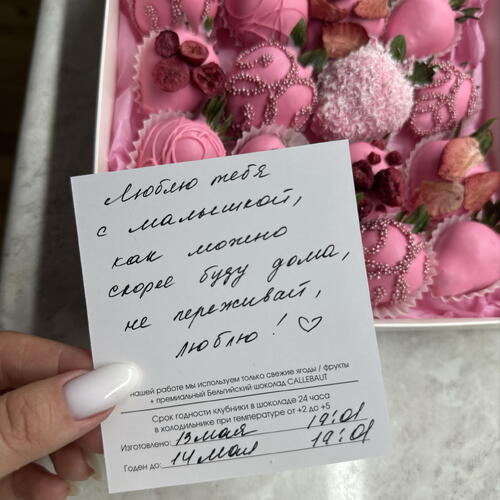 Люблю тебя
с малышкой,
как можно
скорее буду дома,
не переживай,
люблю! ♡
нашей работе мы используем только свежие ягоды / фрукты
+ премиальный Бельгийский шоколад CALLEBAUT
Срок годности клубники в шоколаде 24 часа
в холодильнике при температуре от +2 до +5
Изготовлено: 13 мая 19:01
Годен до: 14 мая 19:01